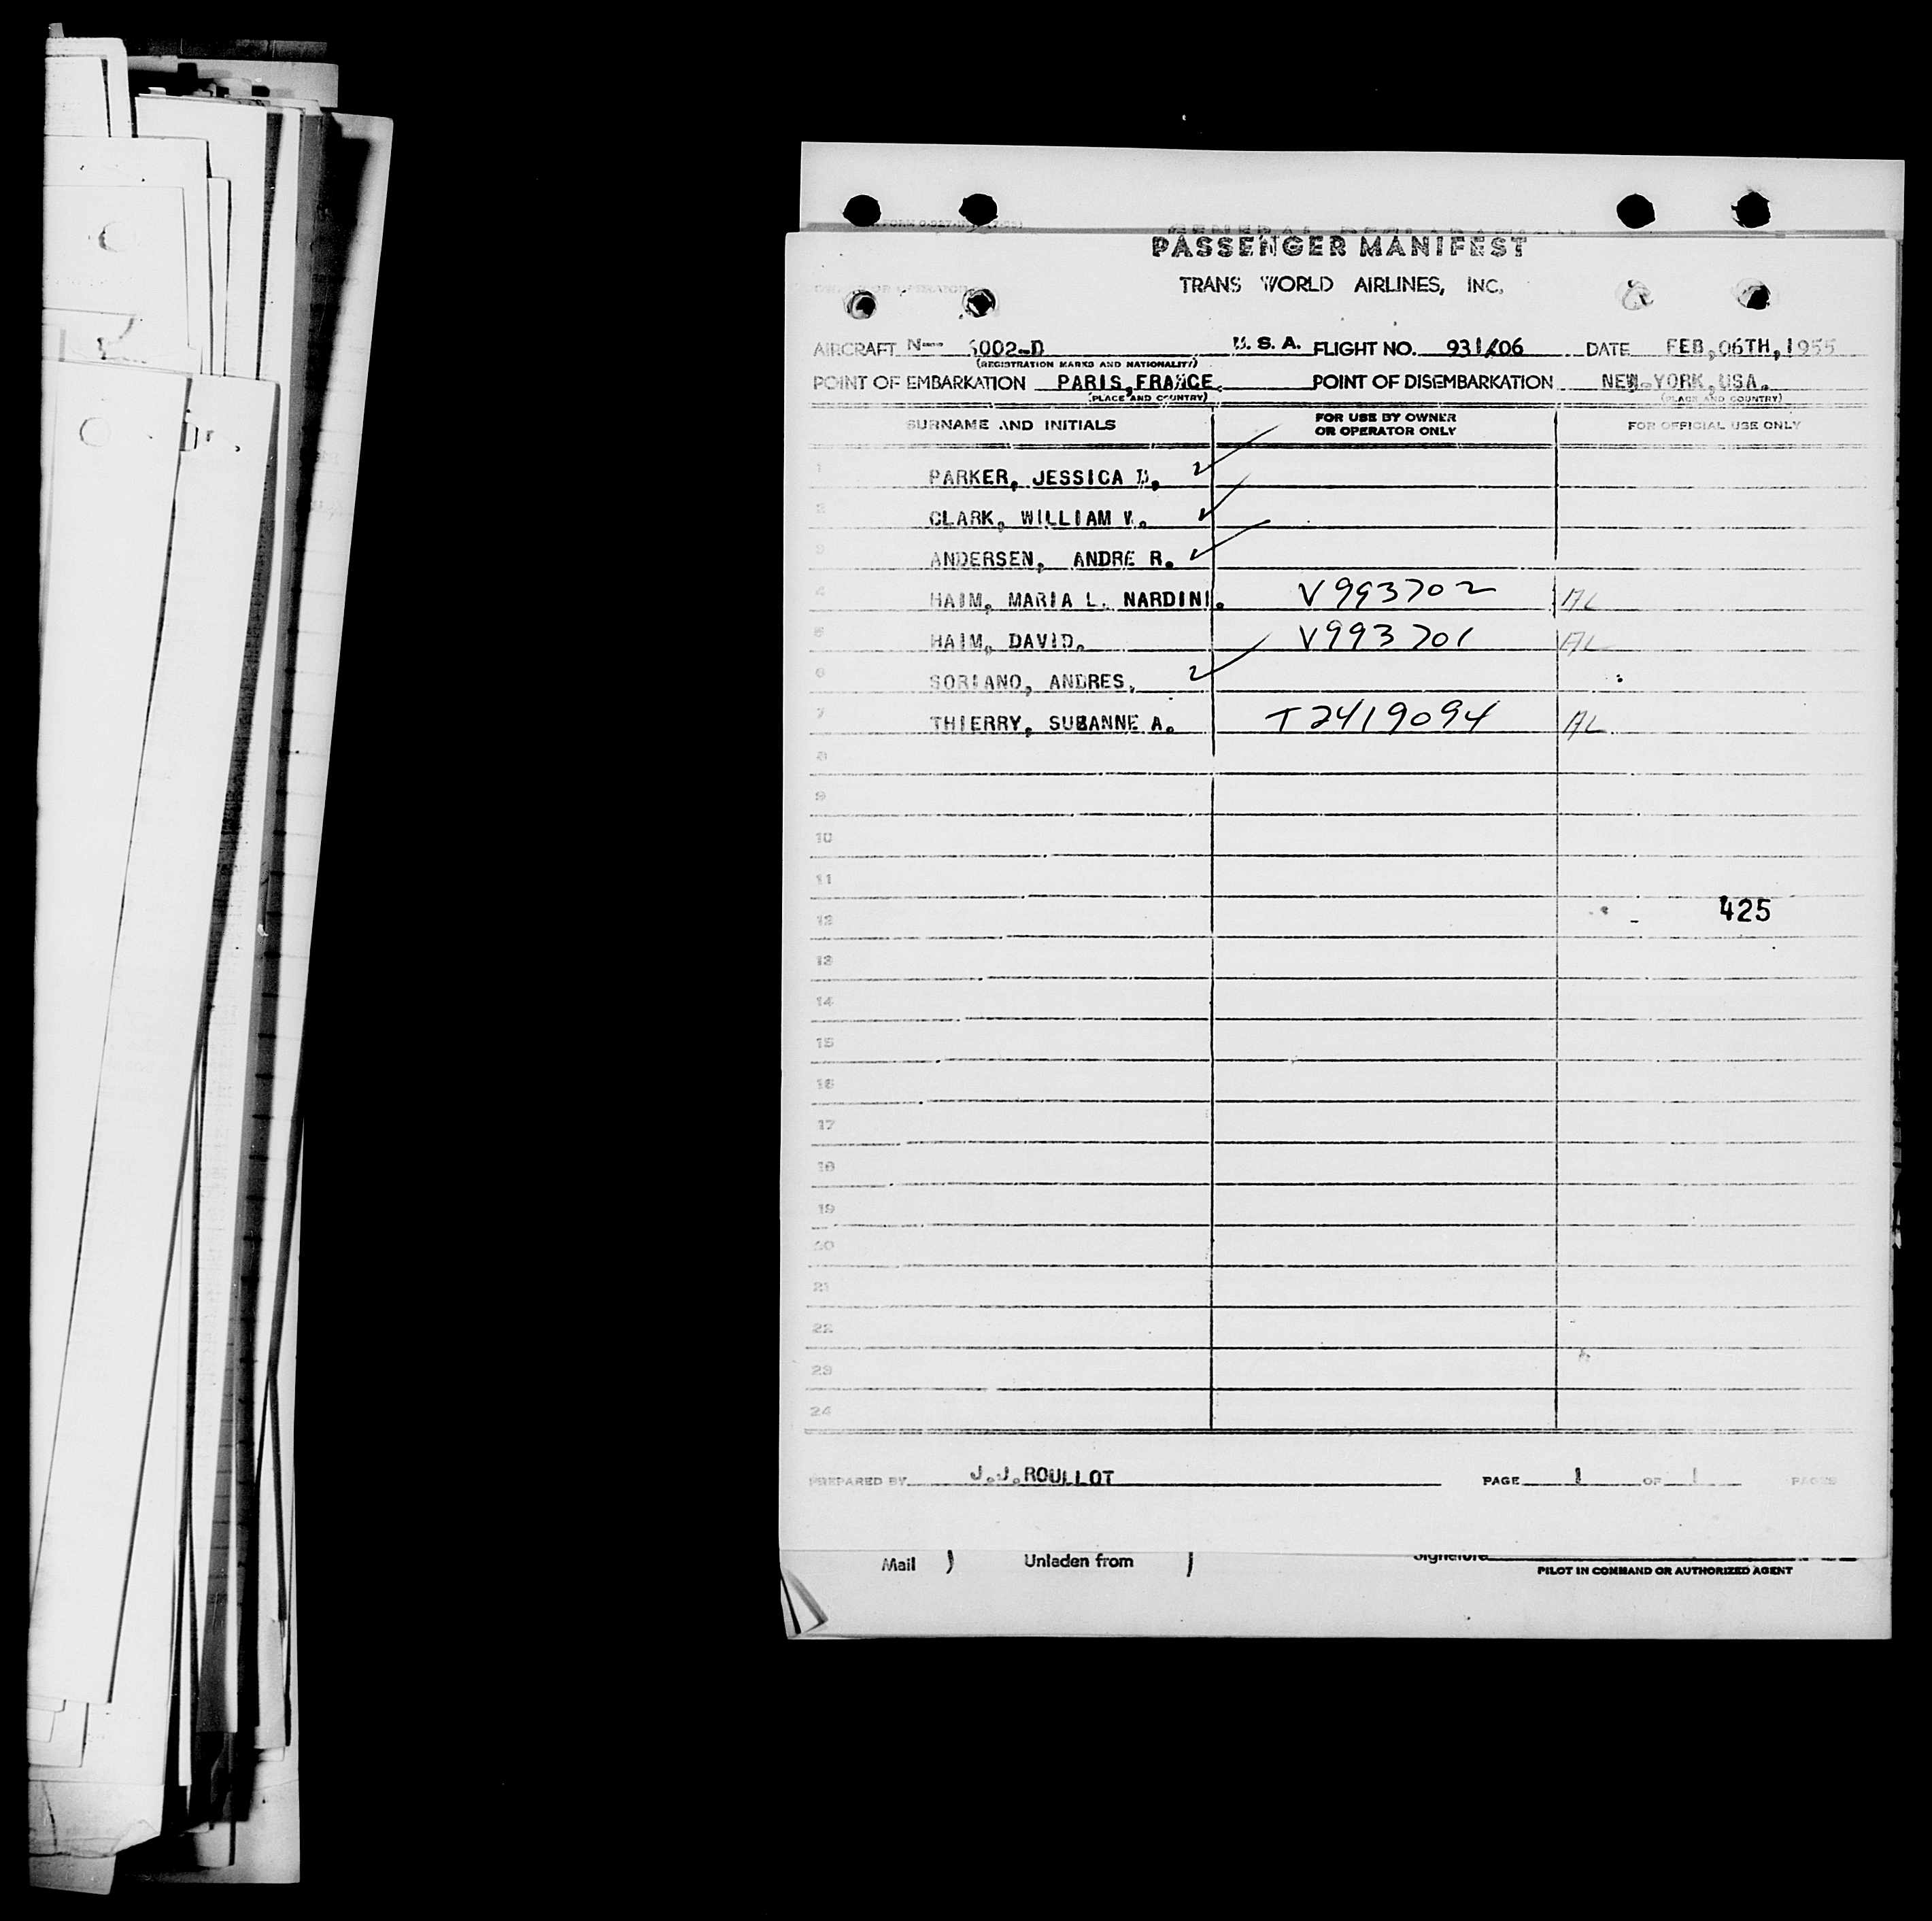 PASSENGER MANIFEST
TRANS WORLD AIRLINES, INC.
AIRCRAFT N— 6002-D U. S. A. FLIGHT NO. 931/06 DATE FEB,06TH,1955
(REGISTRATION MARKS AND NATIONALITY)
POINT OF EMBARKATION PARIS,FRANCE. POINT OF DISEMBARKATION NEW-YORK,USA.
(PLACE AND COUNTRY) (PLACE AND COUNTRY)
SURNAME AND INITIALS FOR USE BY OWNER OR OPERATOR ONLY FOR OFFICIAL USE ONLY
1 PARKER, JESSICA D. ✓
2 CLARK, WILLIAM V. ✓
3 ANDERSEN, ANDRE R. ✓
4 HAIM, MARIA L. NARDINI. V993702 AL
5 HAIM, DAVID. V993701 AL
6 SORIANO, ANDRES. ✓
7 THIERRY, SUZANNE A. T2419094 AL
8
9
10
11
12 425
13
14
15
16
17
18
19
20
21
22
23
24
PREPARED BY J.J.ROULLOT PAGE 1 OF 1 PAGES
Mail ) Unladen from ) Signature
PILOT IN COMMAND OR AUTHORIZED AGENT